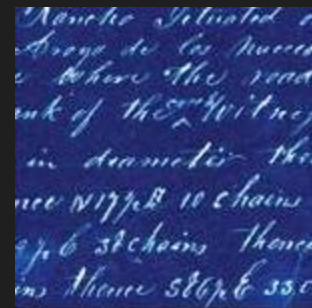 Rancho Situated o
Arroyo de los
where the road
ank of the Witnes
in dramatic the
nce N17½E 10 chains
½ E 38 chains thence
ins thence S86½E 33.